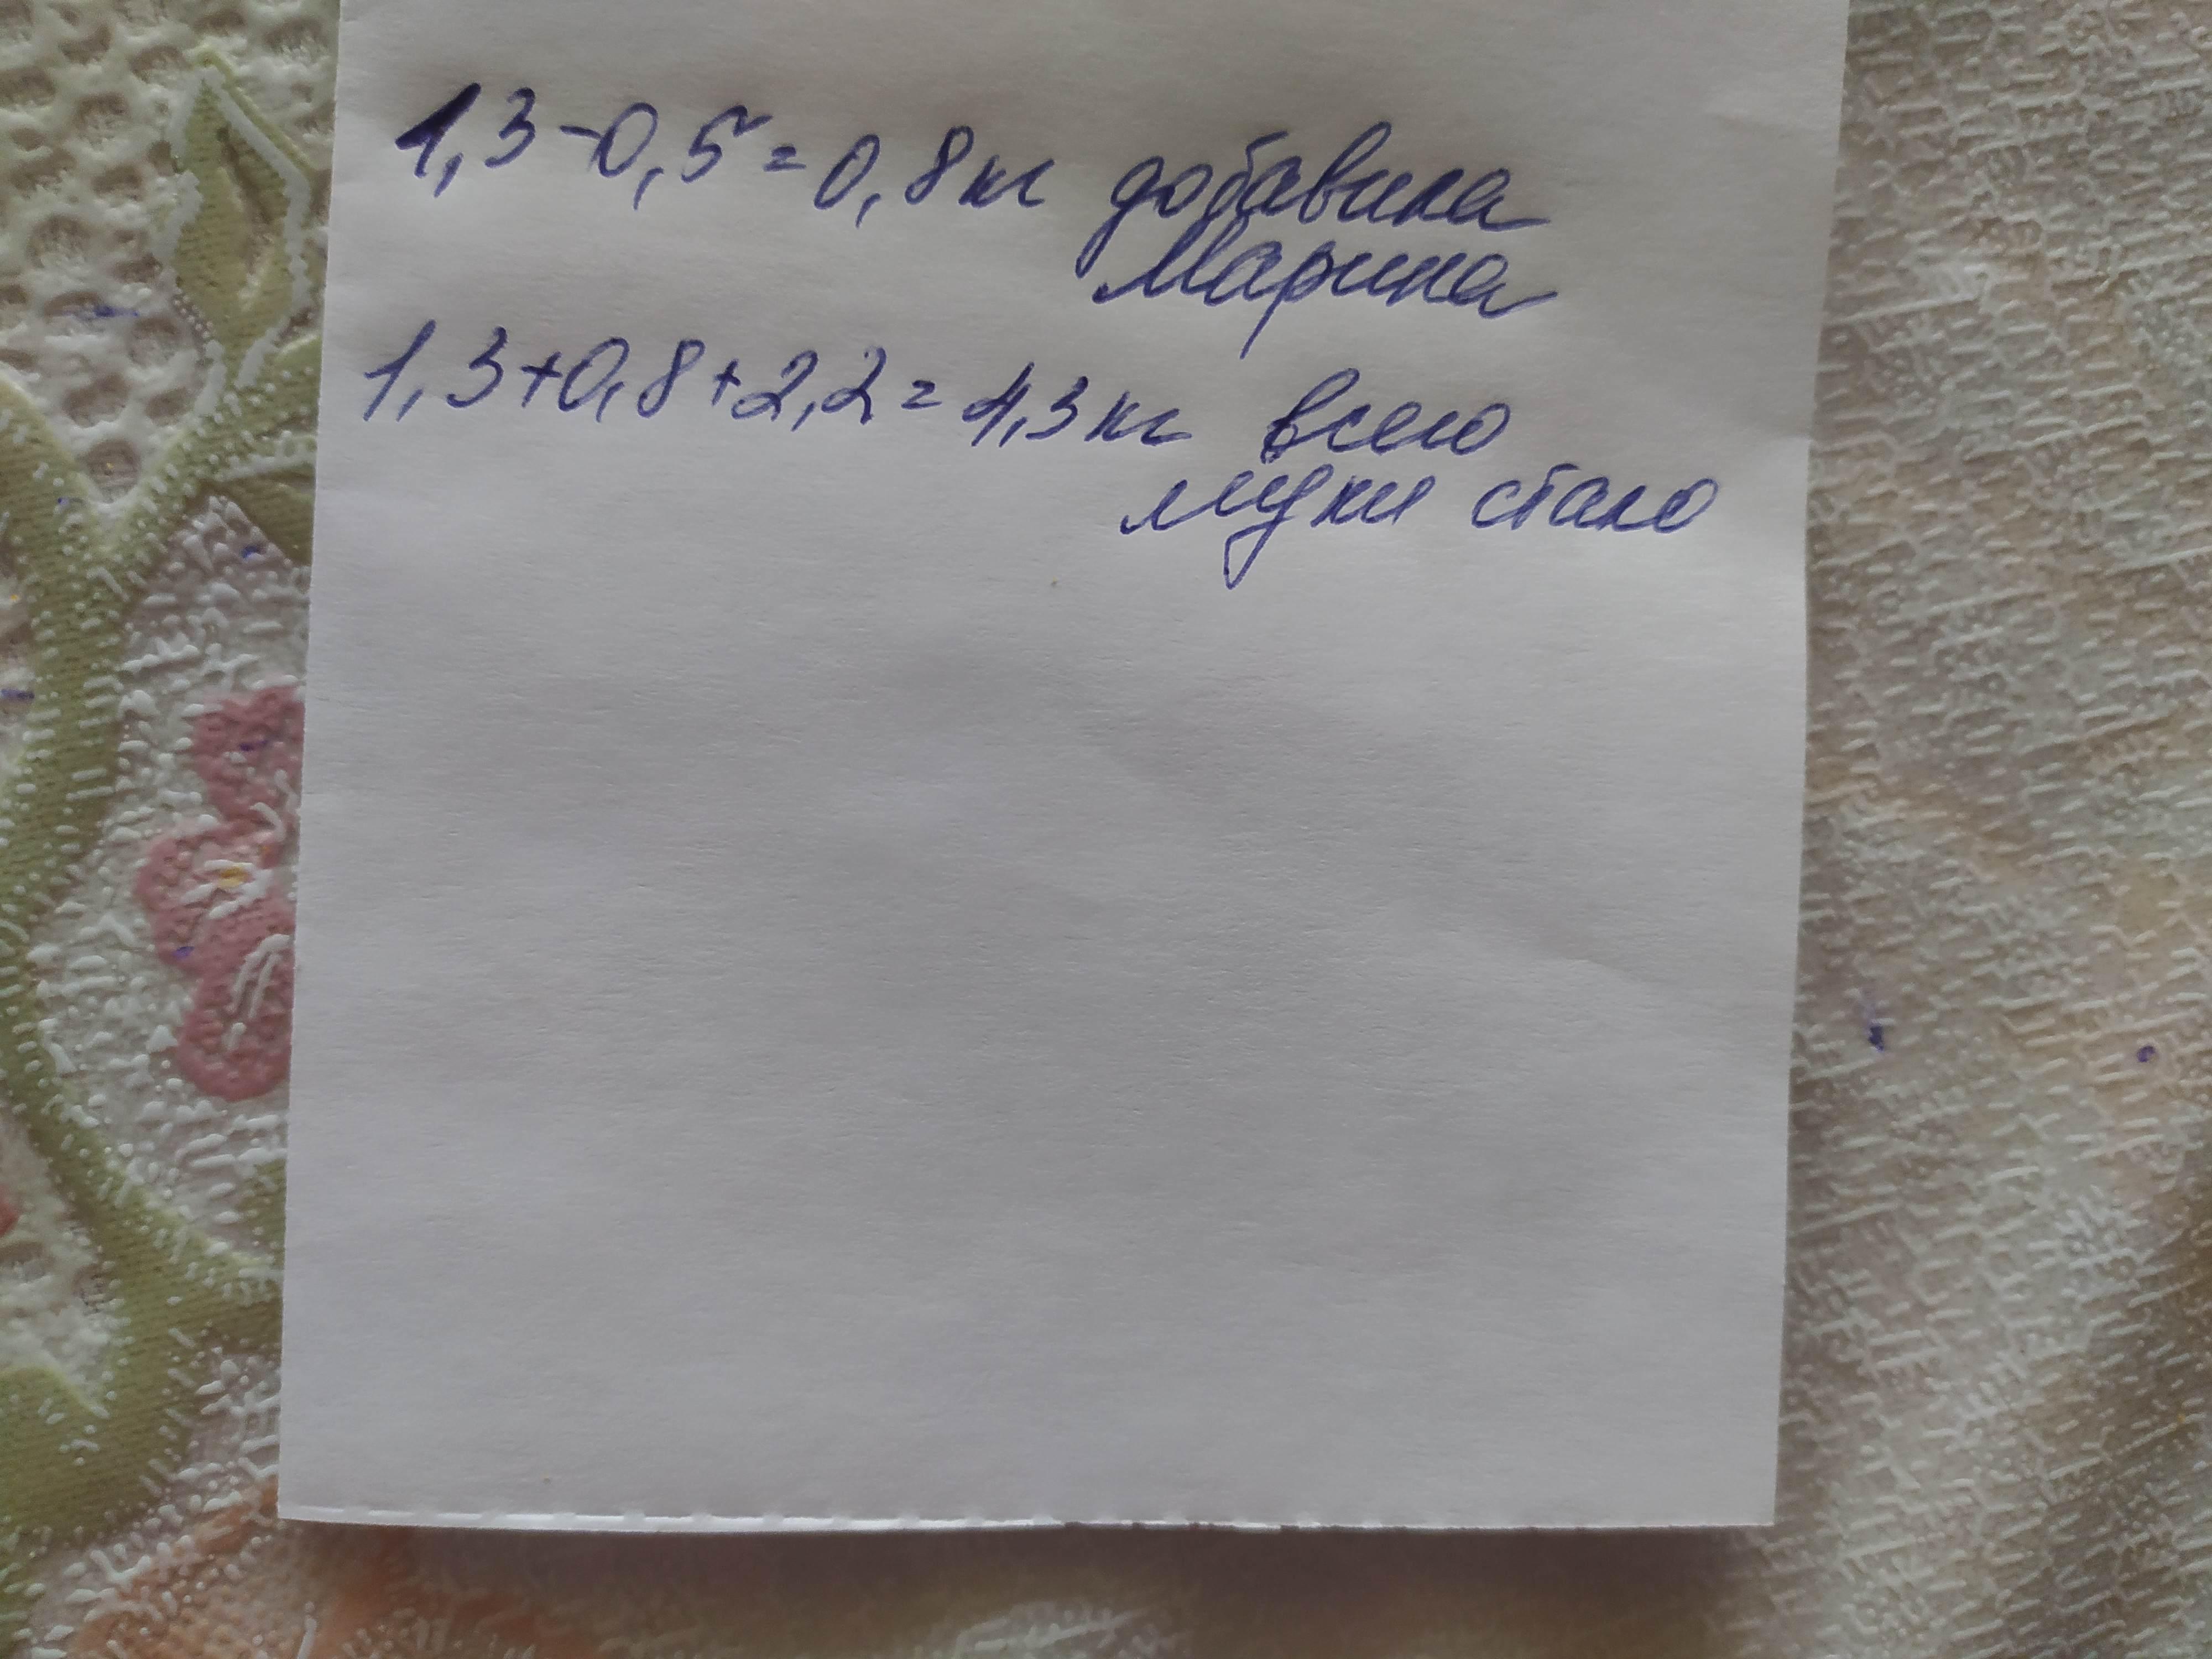 1,3-0,5=0,8кг добавила
Марина
1,3+0,8+2,2=4,3кг всего
муки стало